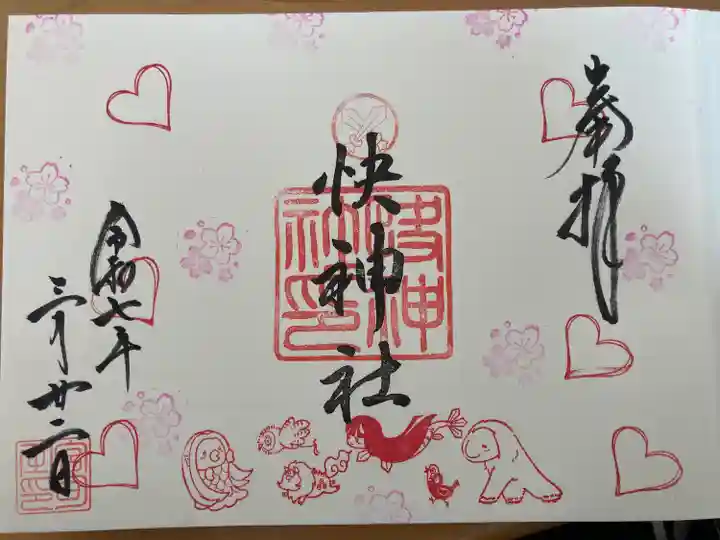 奉拝
快神社
快神
社印
令和七年
三月廿二日